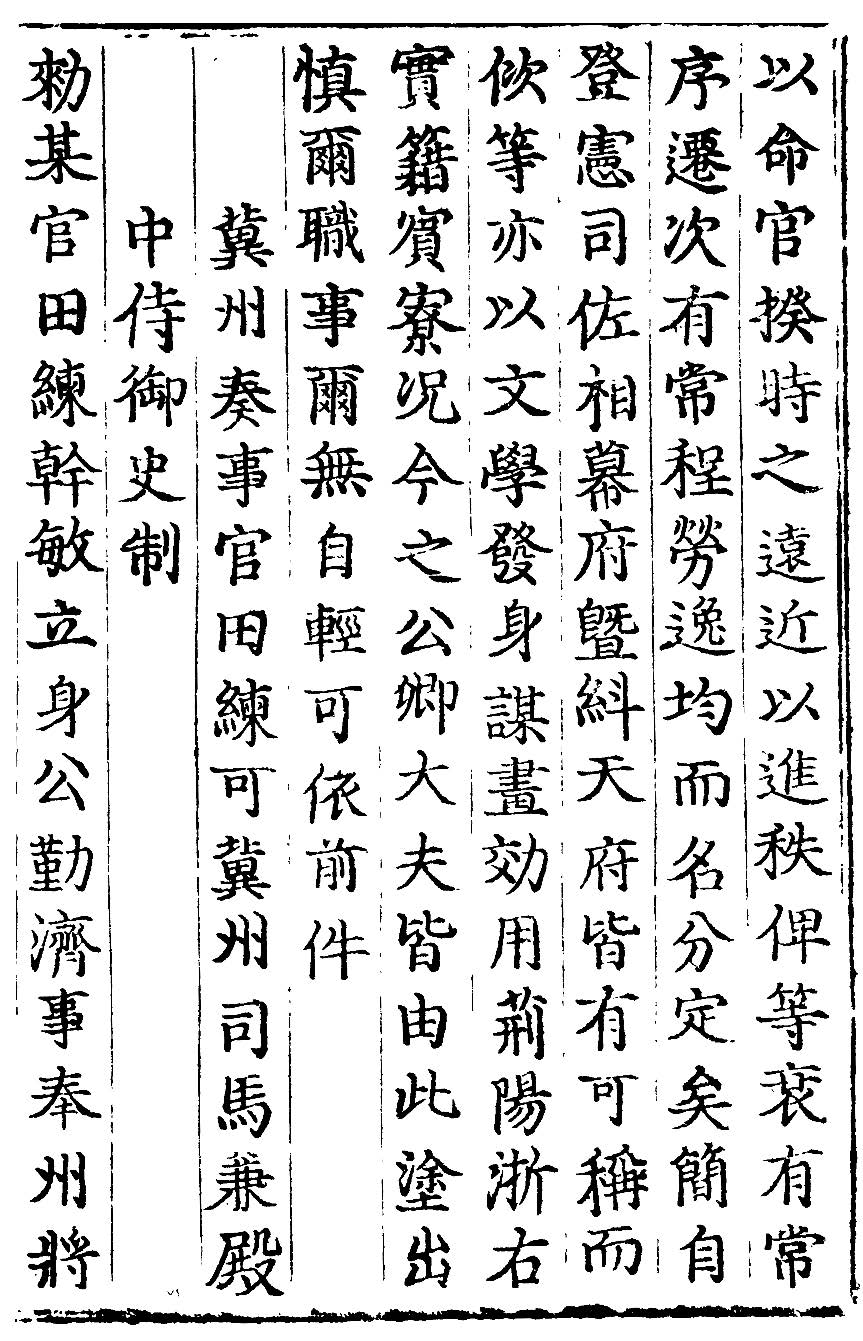 以命官揆時之遠近以進秩俾等衰有常
序遷次有常程勞逸均而名分定矣簡自
登憲司佐相幕府暨糾天府皆有可稱而
佽等亦以文學發身謀畫効用荊陽浙右
實籍賓寮况今之公卿大夫皆由此塗出
慎爾職事爾無自輕可依前件
冀州奏事官田練可冀州司馬兼殿
中侍御史制
勑某官田練幹敏立身公勤濟事奉州將